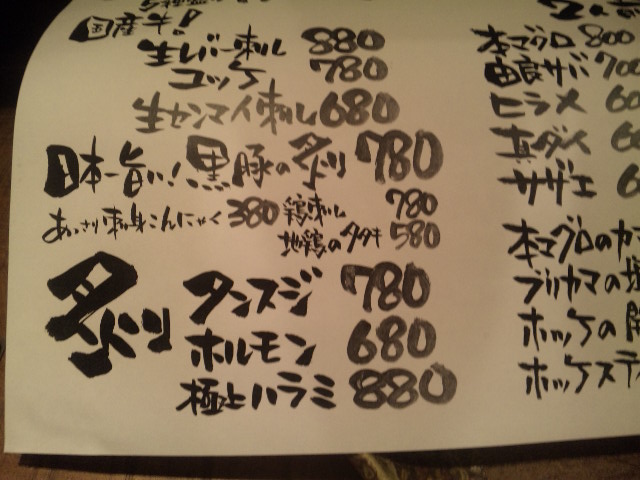 国産牛!
生レバー刺し 880
ユッケ 780
生センマイ刺し 680
日本一旨い!黒豚の炙り 780
あっさり刺身こんにゃく 380
鶏刺し 780
地鶏のタタキ 580
炙り
タンスジ 780
ホルモン 680
極上ハラミ 880
本マグロ 800
由良サバ 700
ヒラメ
真ダイ
サザエ
本マグロのカマ
ブリカマの塩
ホッケの開
ホッケスティ